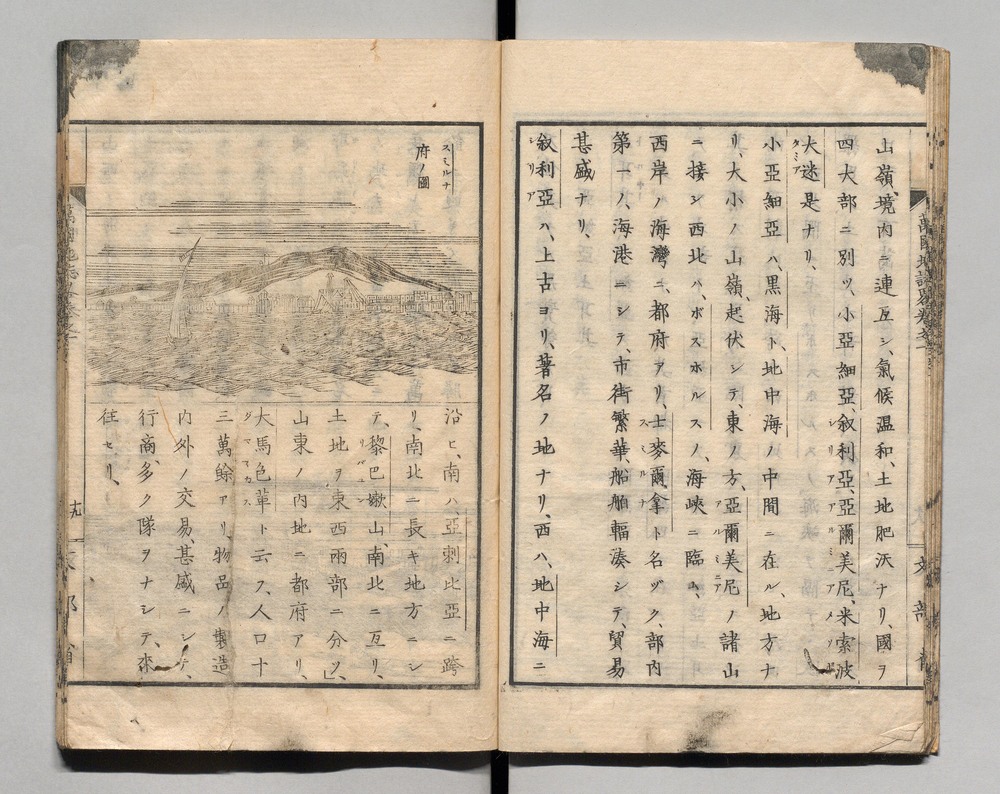 山嶺、境内ニ連互シ、氣候温和、土地肥沃ナリ、國ヲ
四大部ニ別ツ、小亞細亞、叙利亞、亞爾美尼、米索波
シリア アルミニア メソポ
大迷是ナリ、
タミア
小亞細亞ハ、黒海ト、地中海ノ中間ニ在ル、地方ナ
リ、大小ノ山嶺、起伏シテ、東ノ方、亞爾美尼ノ諸山
アルミニア
ニ接シ、西北ハ、ボスホルスノ、海峽ニ臨ム、
西岸ノ海灣ニ、都府アリ、士麥爾拿ト名ヅク、部内
スミルナ
第一ノ、海港ニシテ、市街繁華、船舶輻湊シテ、貿易
甚盛ナリ、
叙利亞ハ、上古ヨリ、著名ノ地ナリ、西ハ、地中海ニ
シリア
スミルナ
府ノ圖
沿ヒ、南ハ、亞剌比亞ニ跨
リ、南北ニ長キ地方ニシ
テ、黎巴嫩山、南北ニ互リ、
リバノン
土地ヲ東西兩部ニ分ツ、
山東ノ内地ニ都府アリ、
大馬色軰ト云フ、人口十
ダマスカス
三萬餘アリ、物品ノ製造
内外ノ交易、甚盛ニシテ、
行商、多ク隊ヲナシテ、來
往セリ、